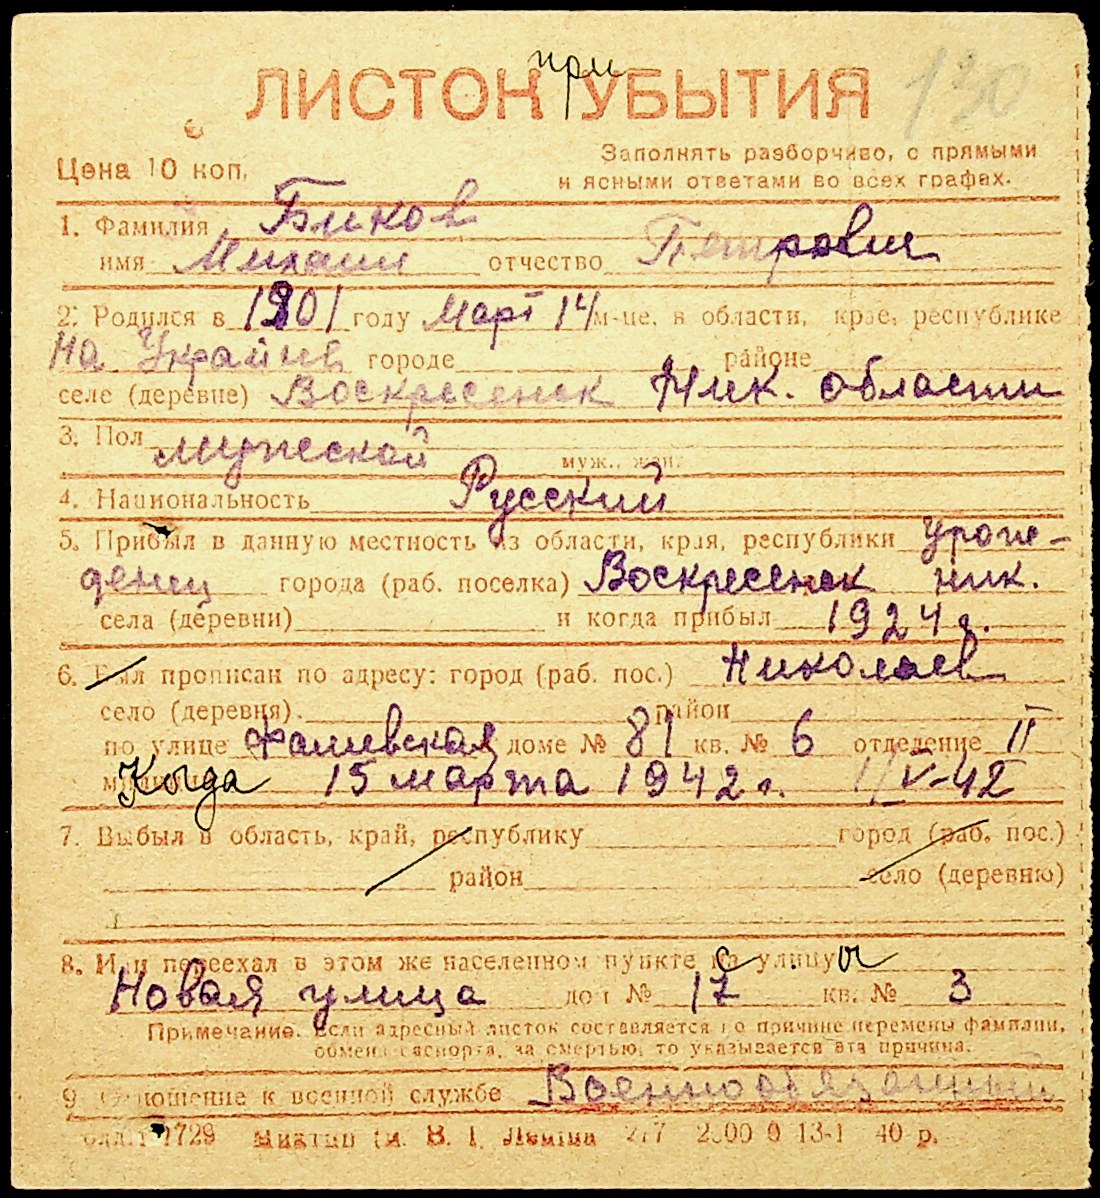 при
ЛИСТОК УБЫТИЯ 130
Цена 10 коп.
Заполнять разборчиво, с прямыми
и ясными ответами во всех графах.
1. Фамилия Биков
имя Михаил отчество Петрович
2. Родился в 1901 году Март 14 м-це, в области, крае, республике
На Украине городе районе
селе (деревне) Воскресенск Ник. области
3. Пол мужеской муж., жен.
4. Национальность Русский
5. Прибыл в данную местность из области, края, республики уроже-
денец города (раб. поселка) Воскресенск ник.
села (деревни) и когда прибыл 1924 г.
6. Был прописан по адресу: город (раб. пос.) Николаев
село (деревня) район
по улице доме № 81 кв. № 6 отделение II
Когда 15 марта 1942 г. 1/V-42
7. Выбыл в область, край, республику город (раб. пос.)
район село (деревню)
8. Или переехал в этом же населенном пункте с улицы
Новая улица дом № 17 кв. № 3
Примечание. Если адресный листок составляется по причине перемены фамилии,
обмена паспорта, за смертью, то указывается эта причина.
9. Отношение к военной службе Военнообязанный
1729 Ленiна 217 13-1 40 р.